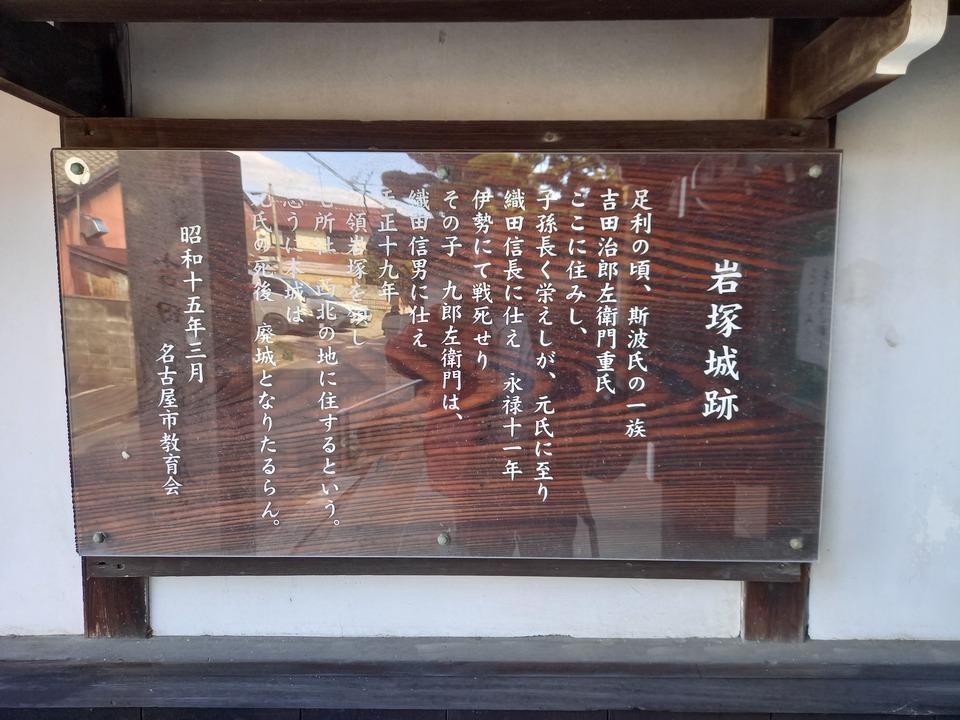 岩塚城跡
足利の頃、斯波氏の一族
吉田治郎左衛門重氏
ここに住みし、
子孫長く栄えしが、元氏に至り
織田信長に仕え 永禄十一年
伊勢にて戦死せり
その子 九郎左衛門は、
織田信男に仕え
天正十九年
領岩塚を領し
西北の地に住するという。
思うに本城は
元氏の死後 廃城となりたるらん。
昭和十五年三月
名古屋市教育会